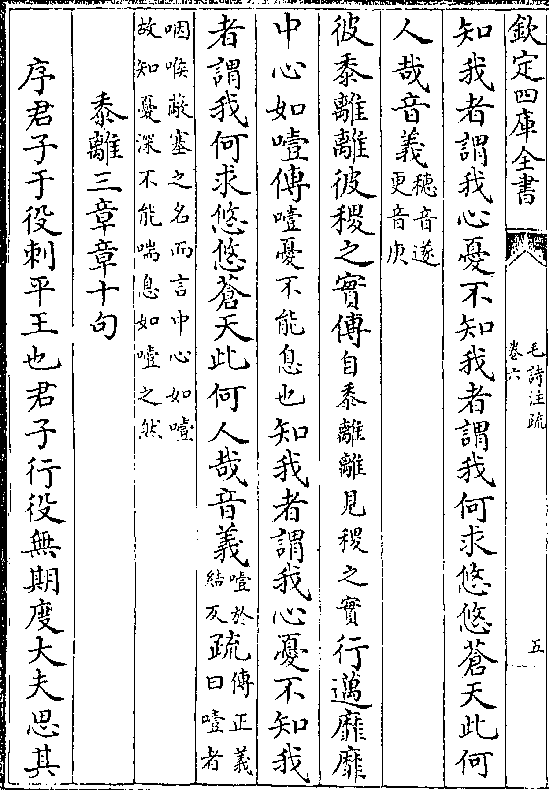 欽定四庫全書
毛詩注疏
卷六
五
知我者謂我心憂不知我者謂我何求悠悠蒼天此何
人哉音義穗音遂
更音庚
彼黍離離彼稷之實傳自黍離離見稷之實行邁靡靡
中心如噎傳噎憂不能息也知我者謂我心憂不知我
者謂我何求悠悠蒼天此何人哉音義噎於
結反疏傳正義
曰噎者
咽喉蔽塞之名而言中心如噎
故知憂深不能喘息如噎之然
黍離三章章十句
序君子于役刺平王也君子行役無期度大夫思其